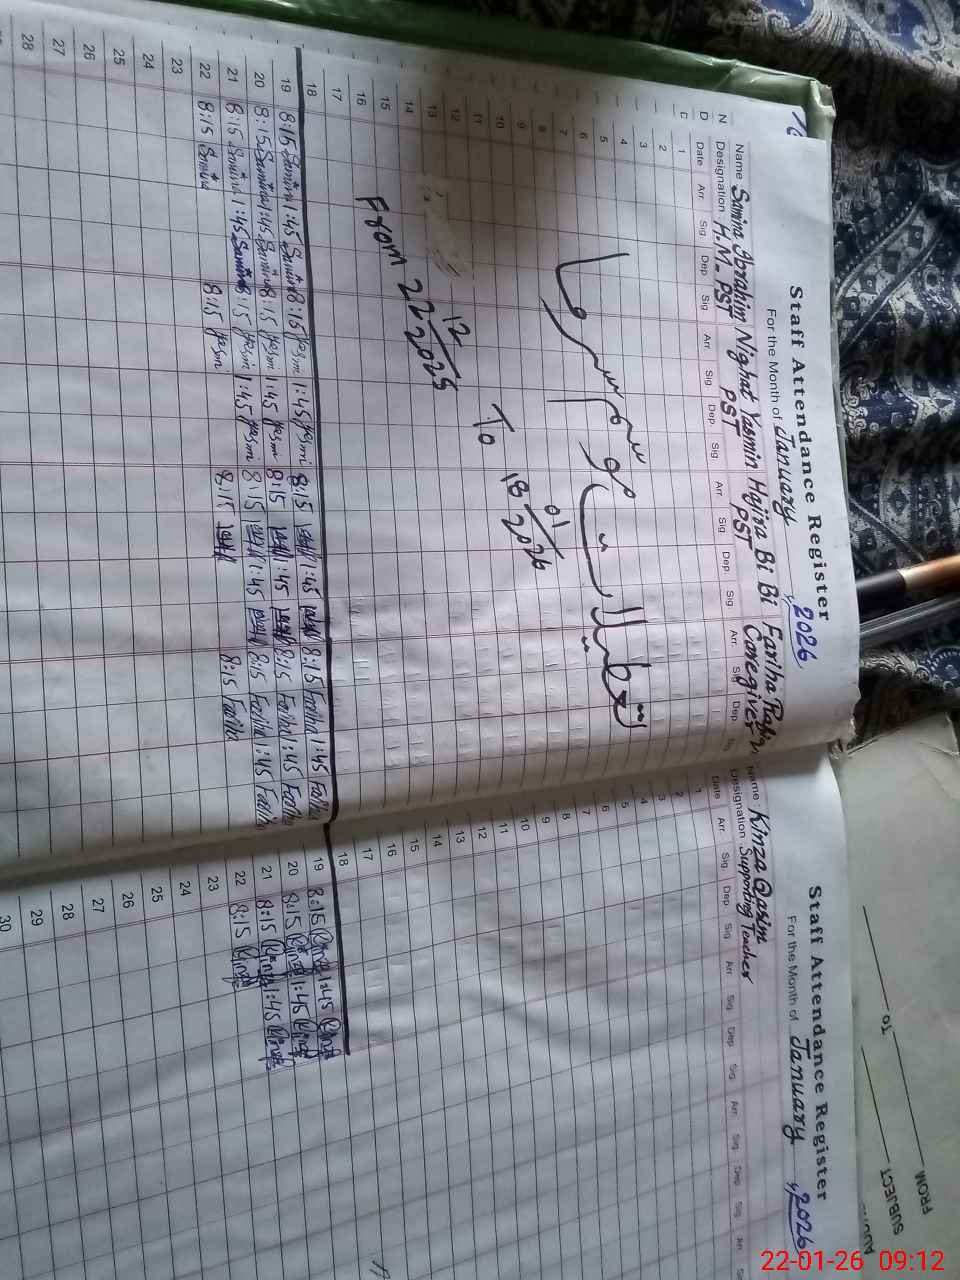 Staff Attendance Register
For the Month of January 2026
Name Samina Ibrahim Nighat Yasmin Hajira Bi Bi Fariha
Designation H.M-PST PST PST Caregiver
Date Arr. Sig. Dep. Sig Arr. Sig. Dep. Sig. Arr. Sig. Dep. Sig Arr. Sig Dep.
1
2
3
4
5
6
7
8
9
10
11
12
13
14
15
16
17
18
موسم سرما کی تعطیلات
From 22/12 2025
To 18/01 2026
19 8:15 Samina 1:45 Samina 8:15 Yasmin 1:45 Yasmin 8:15 1:45 8:15 Fariha 1:45 Fariha
20 8:15 Samina 1:45 Samina 8:15 Yasmin 1:45 Yasmin 8:15 1:45 8:15 Fariha 1:45 Fariha
21 8:15 Samina 1:45 Samina 8:15 Yasmin 1:45 Yasmin 8:15 1:45 8:15 Fariha 1:45 Fariha
22 8:15 Samina 8:15 Yasmin 8:15 8:15 Fariha
23
24
25
26
27
28
Staff Attendance Register
For the Month of January 2026
Name : Kinza Qasim
Designation Supporting Teacher
Date Arr. Sig. Dep. Sig. Arr. Sig. Dep. Sig. Arr. Sig. Dep. Sig. Arr.
1
2
3
4
5
6
7
8
9
10
11
12
13
14
15
16
17
18
19 8:15 Kinza 1:45 Kinza
20 8:15 Kinza 1:45 Kinza
21 8:15 Kinza 1:45 Kinza
22 8:15 Kinza
23
24
25
26
27
28
29
30
To
FROM
SUBJECT
22-01-26 09:12